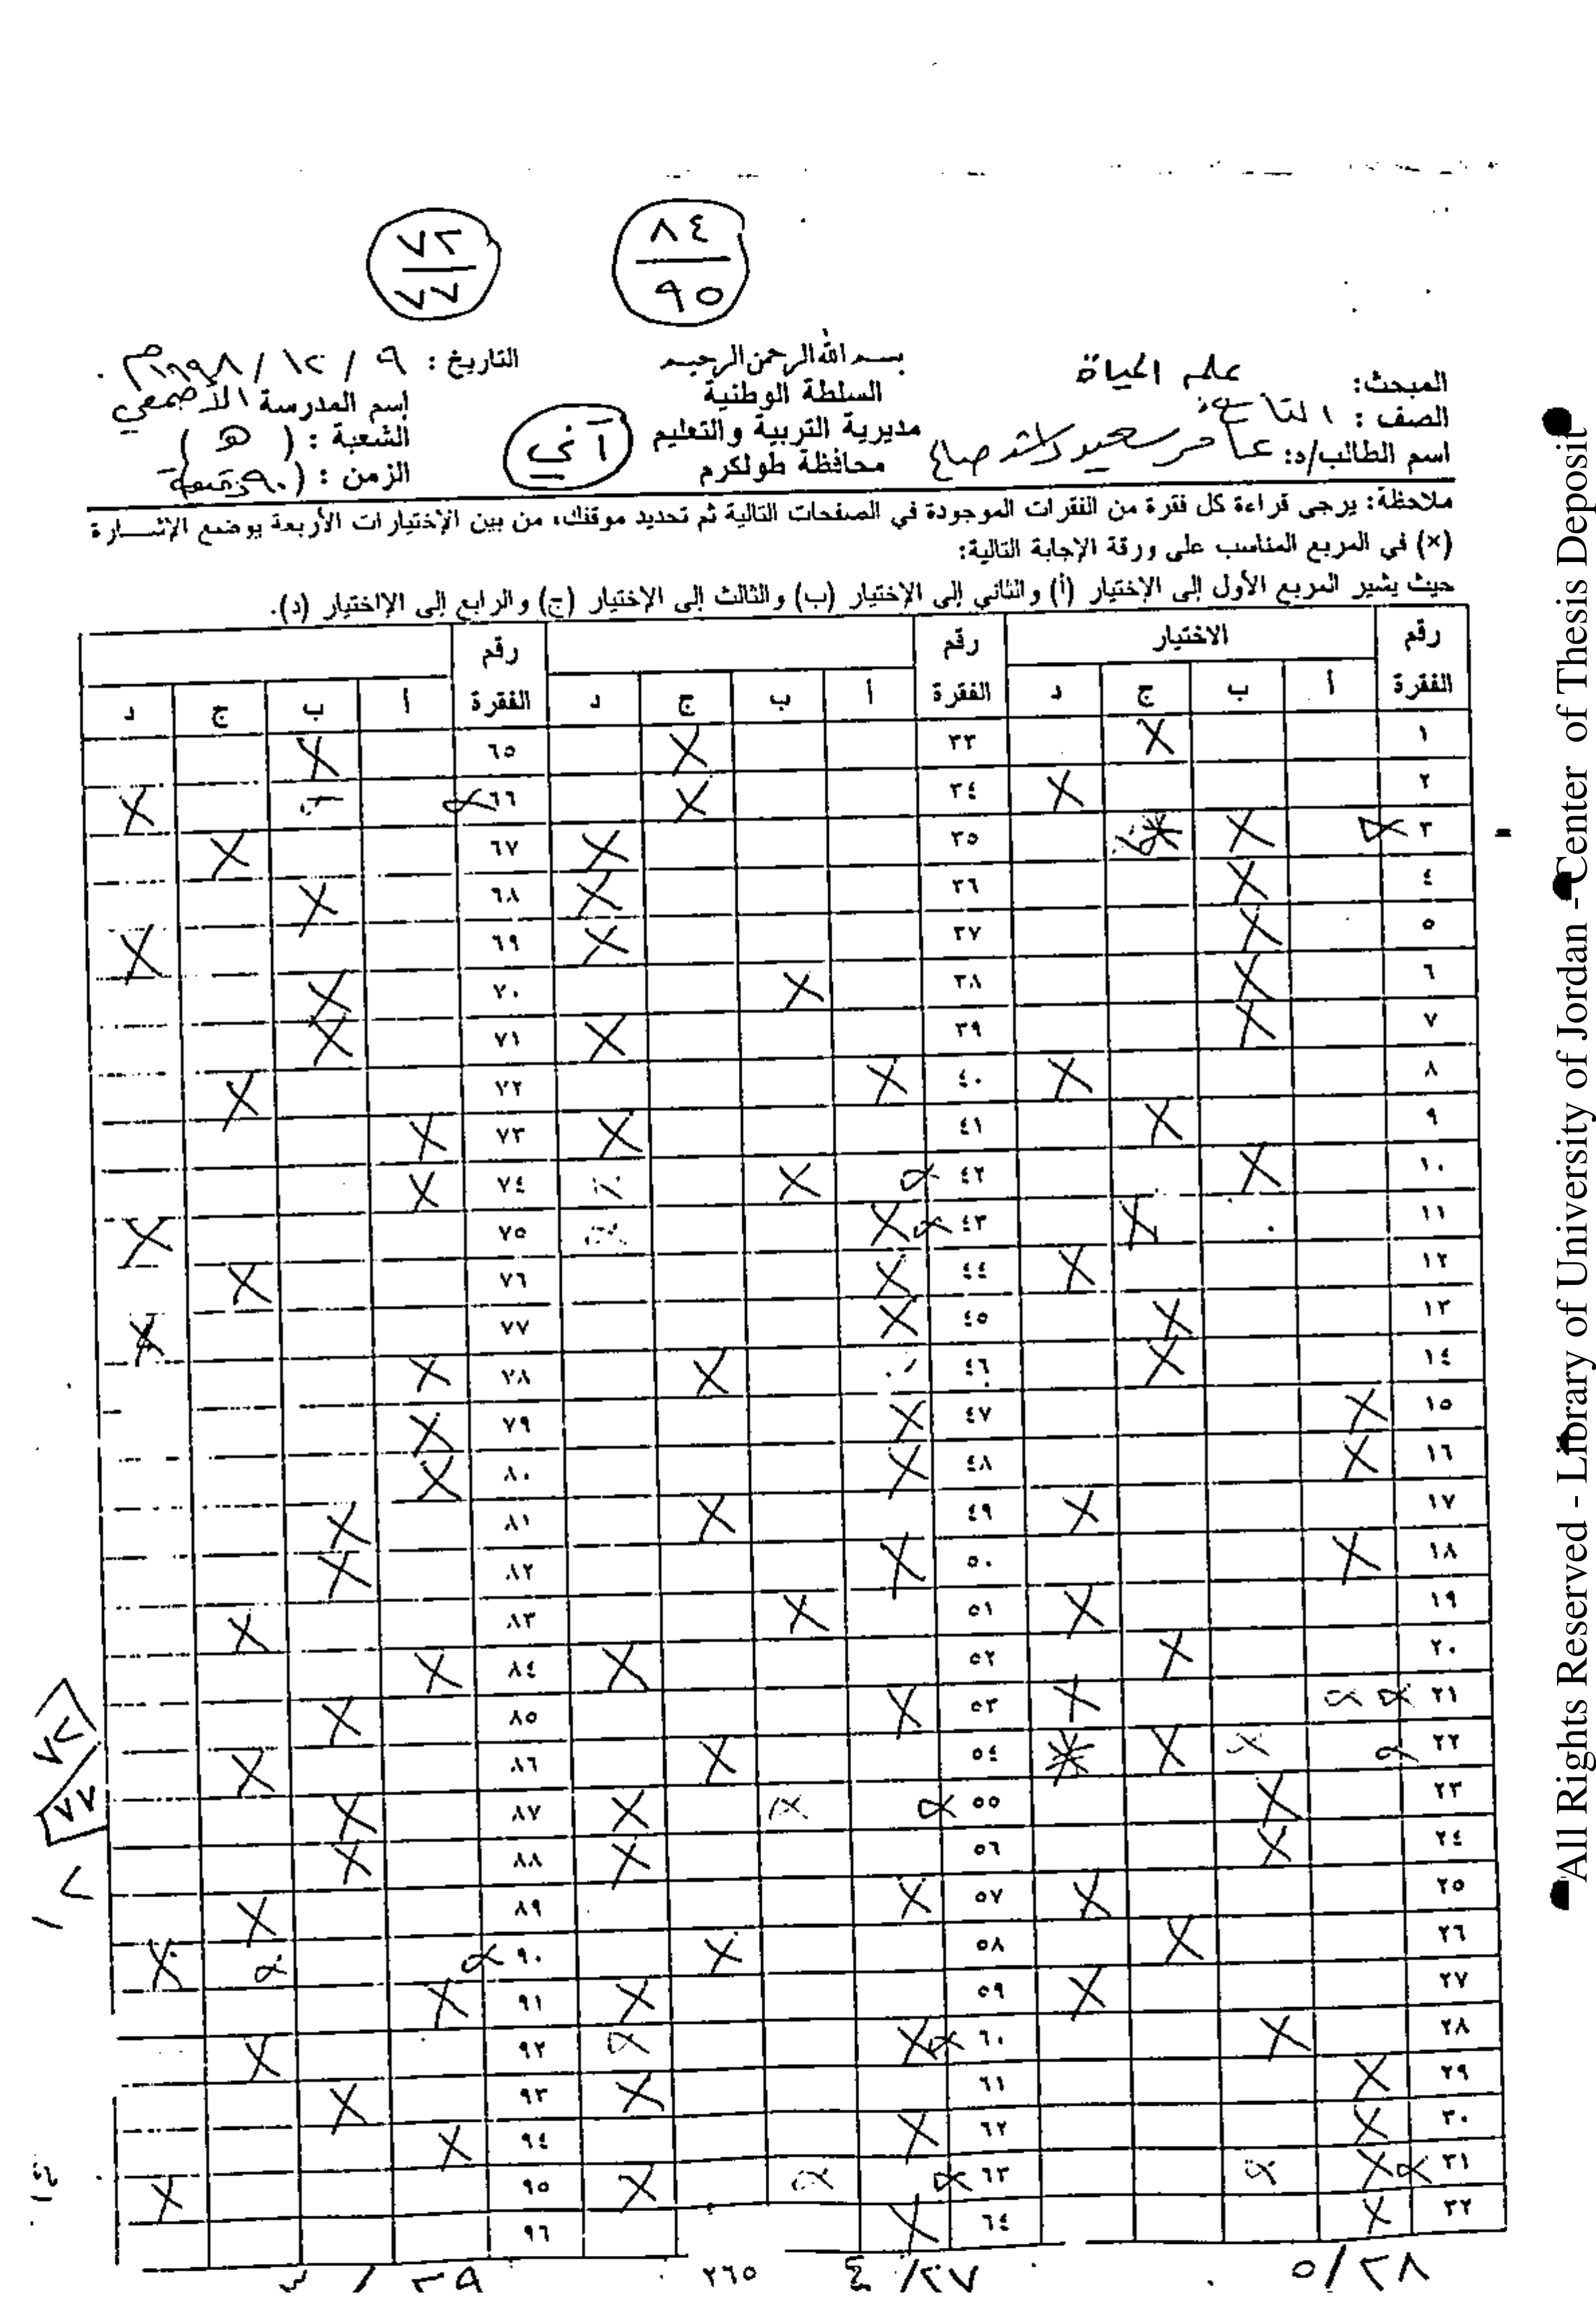 ٨٤
٩٥
٧٢
٧٧
بسم الله الرحمن الرحيم
السلطة الوطنية
مديرية التربية والتعليم
محافظة طولكرم
المبحث: علم الحياة
الصف: التاسع
اسم الطالب/ة: عامر سعيد راشد صباح
آني
التاريخ: ٩ / ١٢ / ١٩٩٨م
إسم المدرسة الأصمعي
الشعبة: ( هـ )
الزمن: (٩٠ دقيقة)
ملاحظة: يرجى قراءة كل فقرة من الفقرات الموجودة في الصفحات التالية ثم تحديد موقفك، من بين الإختيارات الأربعة بوضع الإشـــارة
(×) في المربع المناسب على ورقة الإجابة التالية:
حيث يشير المربع الأول إلى الإختيار (أ) والثاني إلى الإختيار (ب) والثالث إلى الإختيار (ج) والرابع إلى الإاختيار (د).
رقم الاختيار رقم رقم
الفقرة أ ب ج د الفقرة أ ب ج د الفقرة أ ب ج د
١ ٣٣ ٦٥
٢ ٣٤ ٦٦
٣ ٣٥ ٦٧
٤ ٣٦ ٦٨
٥ ٣٧ ٦٩
٦ ٣٨ ٧٠
٧ ٣٩ ٧١
٨ ٤٠ ٧٢
٩ ٤١ ٧٣
١٠ ٤٢ ٧٤
١١ ٤٣ ٧٥
١٢ ٤٤ ٧٦
١٣ ٤٥ ٧٧
١٤ ٤٦ ٧٨
١٥ ٤٧ ٧٩
١٦ ٤٨ ٨٠
١٧ ٤٩ ٨١
١٨ ٥٠ ٨٢
١٩ ٥١ ٨٣
٢٠ ٥٢ ٨٤
٢١ ٥٣ ٨٥
٢٢ ٥٤ ٨٦
٢٣ ٥٥ ٨٧
٢٤ ٥٦ ٨٨
٢٥ ٥٧ ٨٩
٢٦ ٥٨ ٩٠
٢٧ ٥٩ ٩١
٢٨ ٦٠ ٩٢
٢٩ ٦١ ٩٣
٣٠ ٦٢ ٩٤
٣١ ٦٣ ٩٥
٣٢ ٦٤ ٩٦
٥/٢٨
٤/٢٧
٢٦٥
٣/٢٩
٧٢
٧٧
All Rights Reserved - Library of University of Jordan - Center of Thesis Deposit